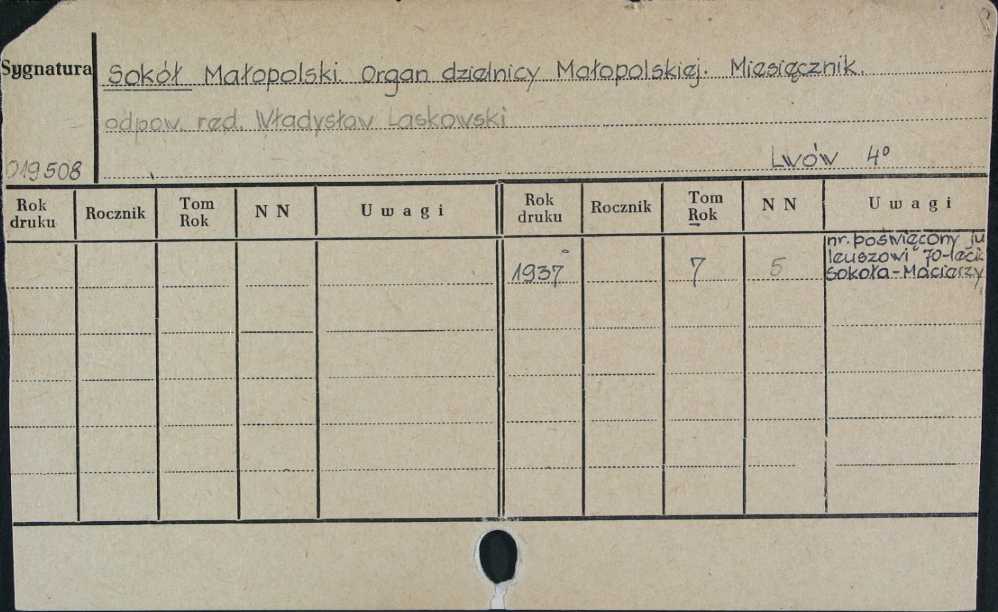 Sygnatura
Sokół Małopolski. Organ dzielnicy Małopolskiej. Miesięcznik.
odpow. red. Władysław Laskowski
019508
Lwów 4°
Rok druku Rocznik Tom Rok NN Uwagi Rok druku Rocznik Tom Rok NN Uwagi
nr. poświęcony ju
leuszowi 70-leci
1937 7 5 Sokoła-Macierzy